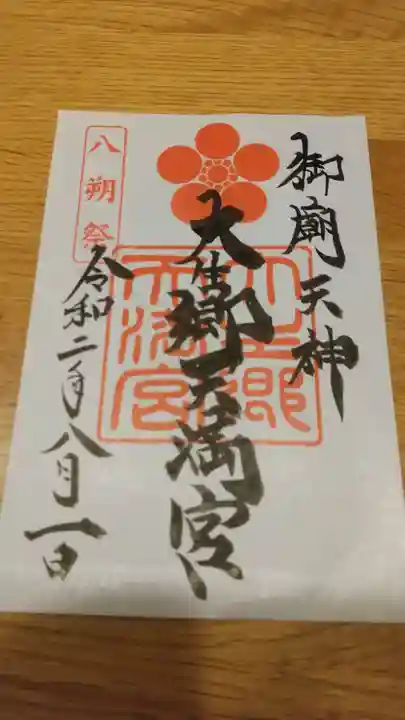 御廟天神
大生郷天満宮
八朔祭
令和二年八月一日
大生郷
天満宮